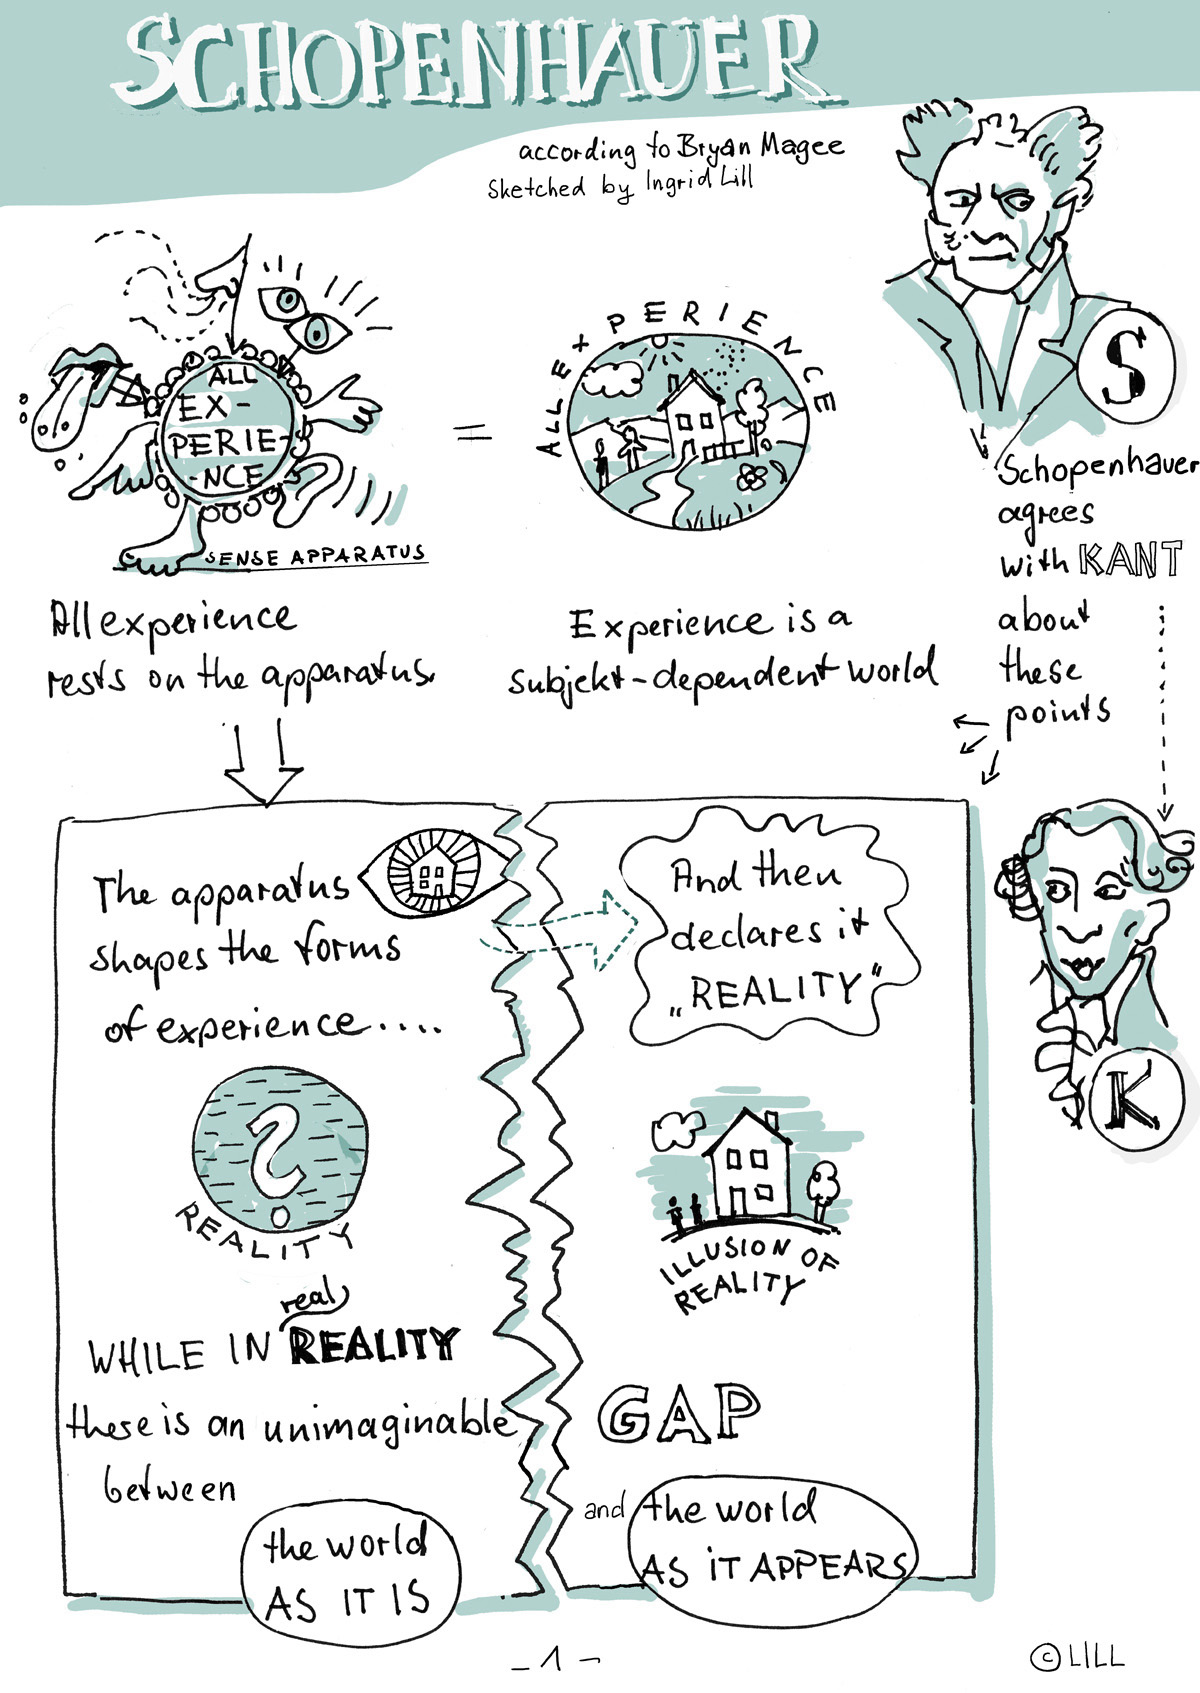 SCHOPENHAUER
according to Bryan Magee
Sketched by Ingrid Lill
ALL
EX-
PERIE-
-NCE
SENSE APPARATUS
=
ALL EXPERIENCE
S
All experience
rests on the apparatus.
Experience is a
subjekt-dependent world
Schopenhauer
agrees
with KANT
about
these
points
The apparatus
shapes the forms
of experience....
And then
declares it
„REALITY“
K
?
REALITY
ILLUSION OF
REALITY
real
WHILE IN REALITY
there is an unimaginable
between
GAP
the world
AS IT IS
and the world
AS iT APPEARS
- 1 -
© LILL